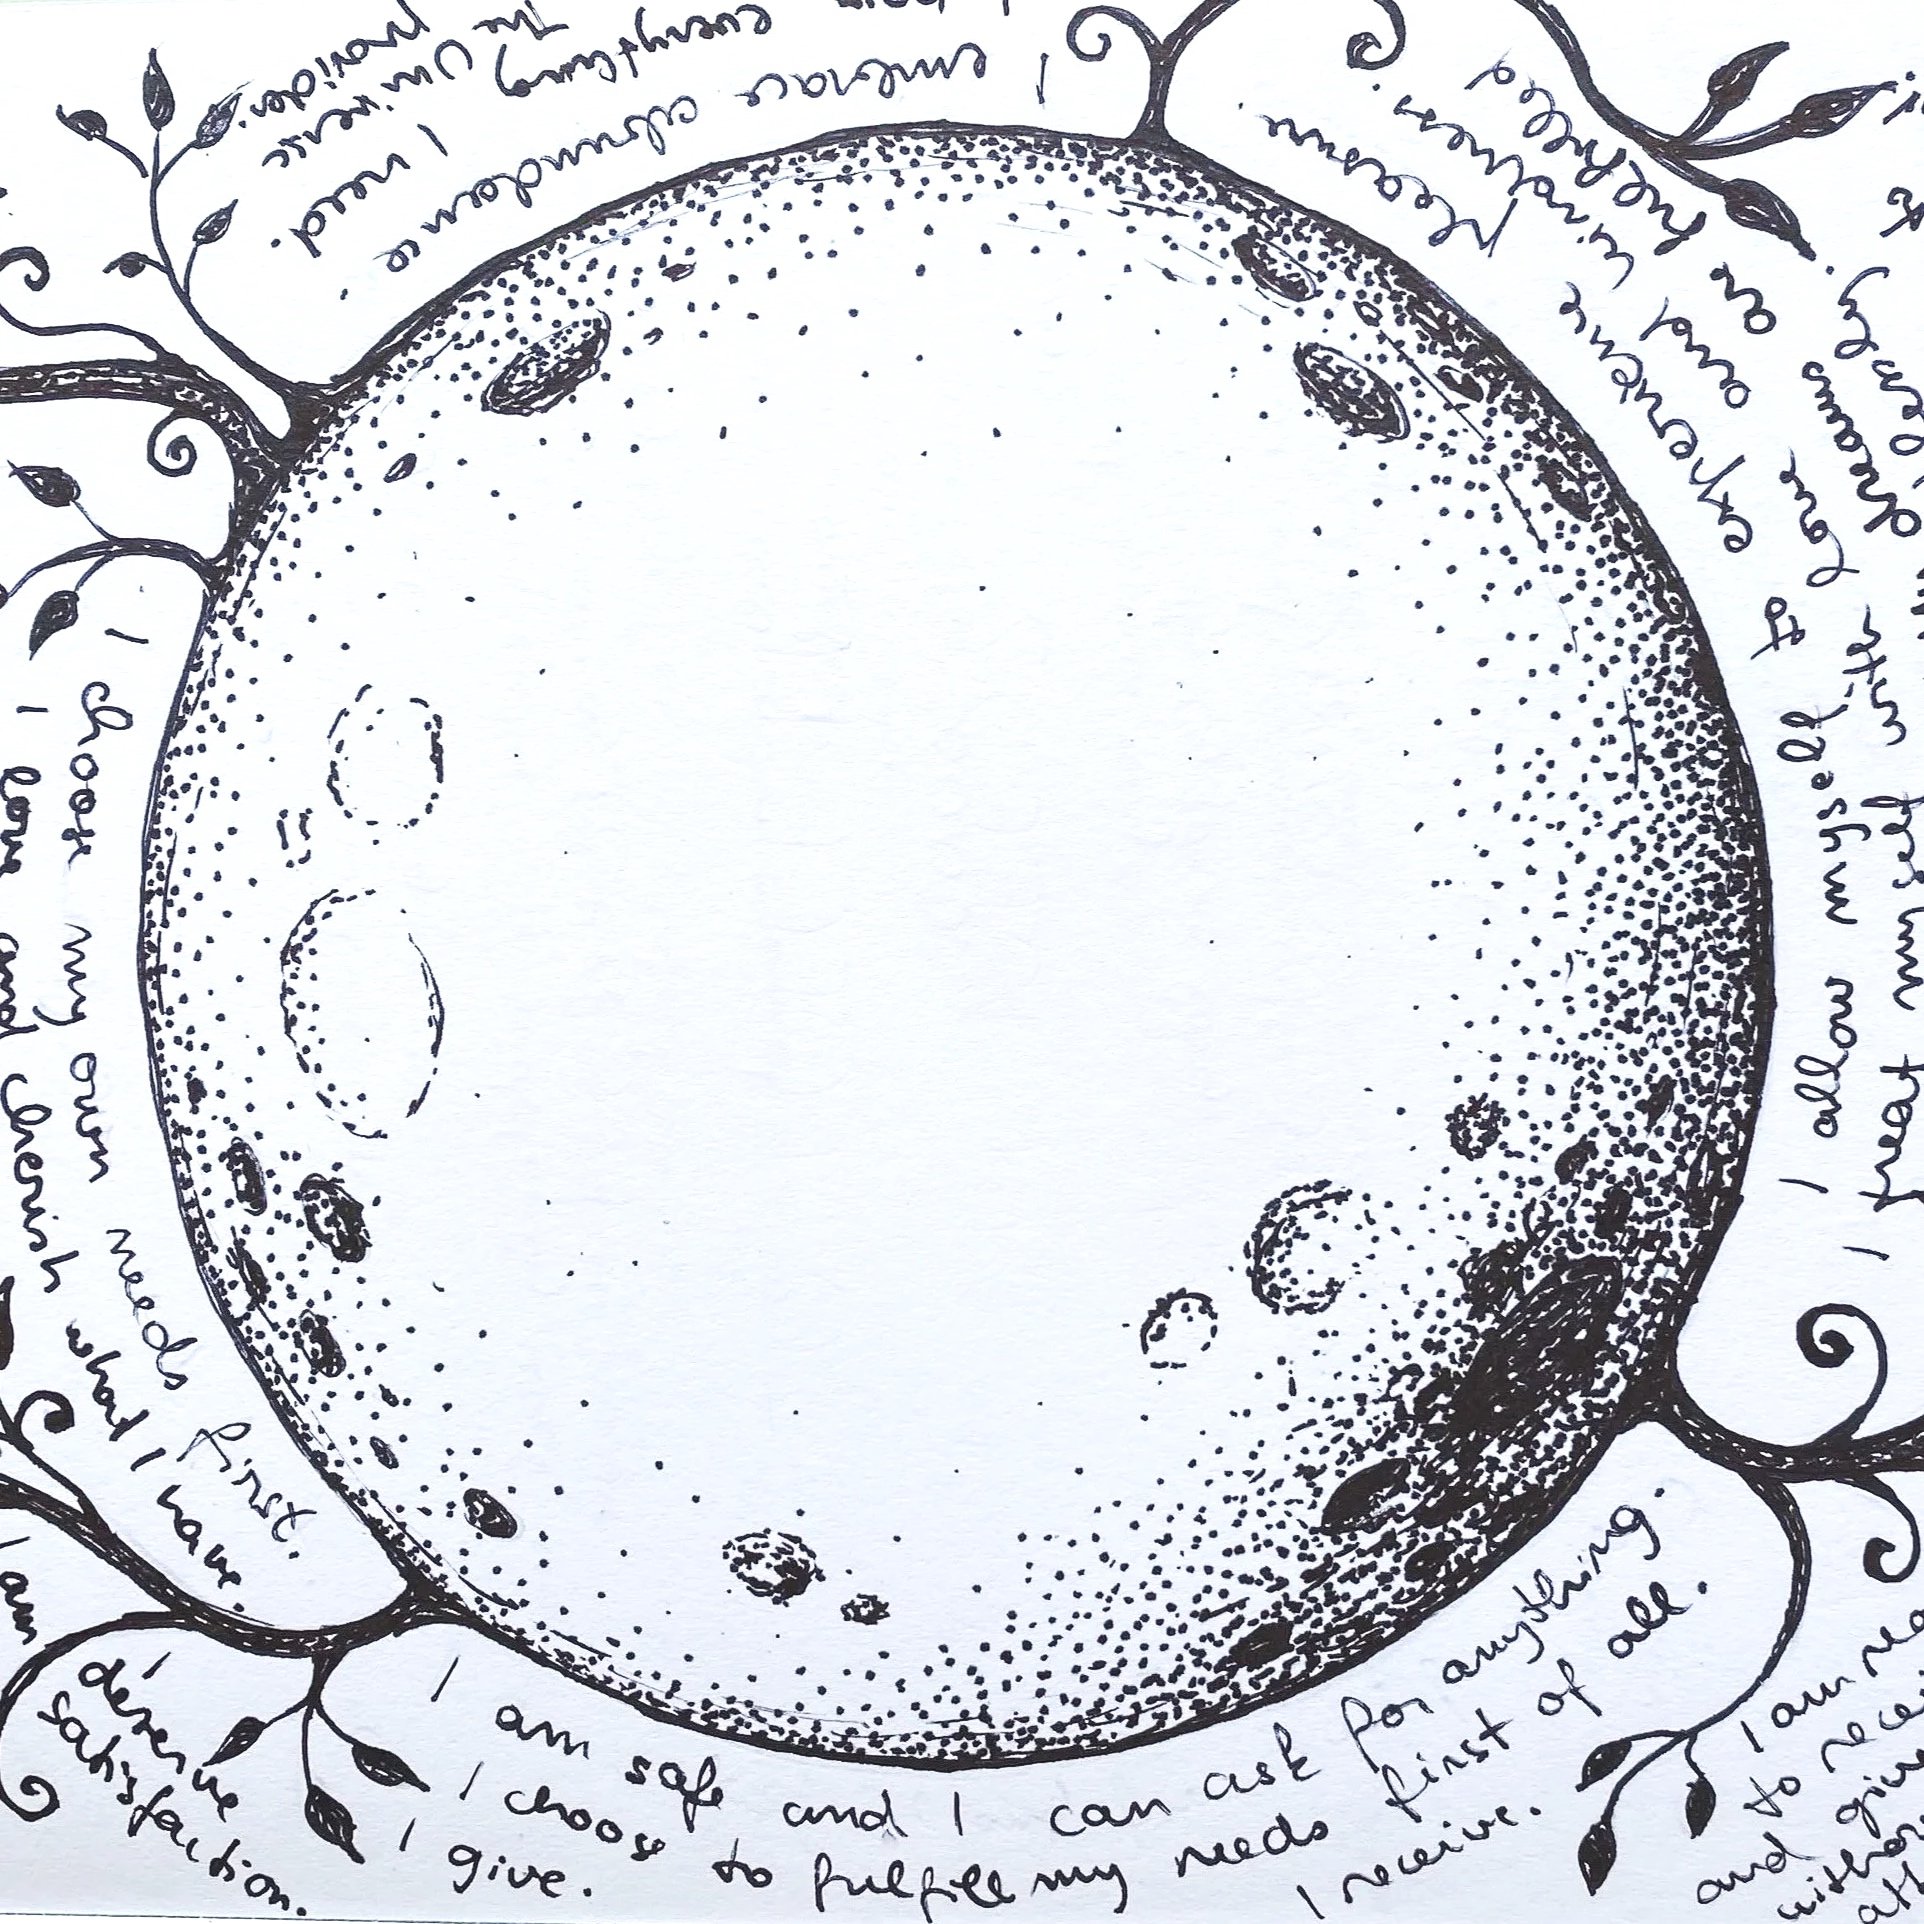 I embrace abundance
everything I need.
The Universe
provides.
pleasure.
I allow myself to experience
love and kindness.
I treat myself with
dreams are fulfilled
I choose my own needs first.
I love and cherish what I have.
I am
I deserve
satisfaction.
I am safe and I can ask for anything.
I choose to fulfill my needs first of all.
I give.
I receive.
I am
to
and